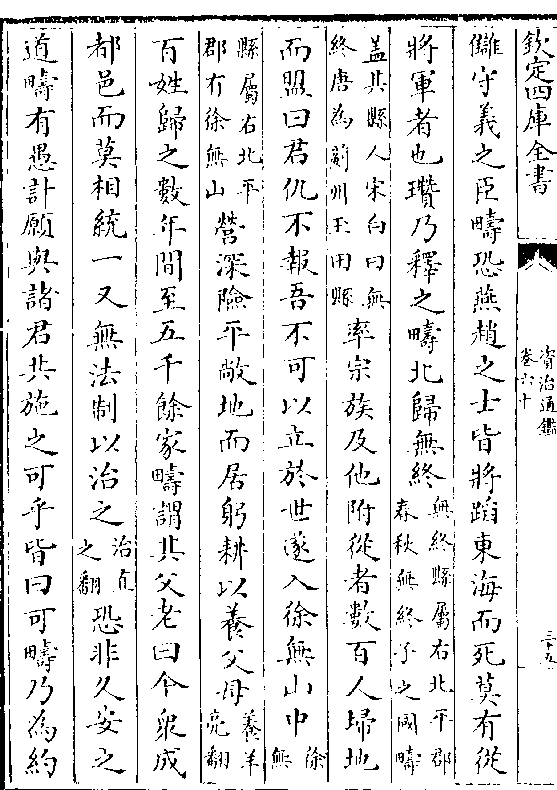 欽定四庫全書
資治通鑑
卷六十
三十五
讎守義之臣疇恐燕趙之士皆將蹈東海而死莫有從
將軍者也瓚乃釋之疇北歸無終
無終縣屬右北平郡
春秋無終子之國疇
盖其縣人宋白曰無
終唐為薊州玉田縣
率宗族及他附從者數百人埽地
而盟曰君仇不報吾不可以立於世遂入徐無山中
徐無
縣屬右北平
郡有徐無山
營深險平敞地而居躬耕以養父母
養羊
亮翻
百姓歸之數年間至五千餘家疇謂其父老曰今衆成
都邑而莫相統一又無法制以治之
治直
之翻
恐非久安之
道疇有愚計願與諸君共施之可乎皆曰可疇乃為約